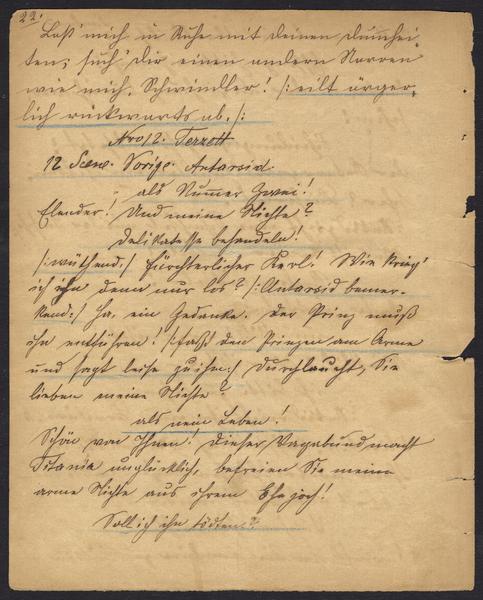 22.
Laß' mich in Ruhe mit deinen Dumhei-
ten; such' Dir einen andern Narren
wie mich, Schwindler! /: eilt ärger-
lich rückwärts ab. :/
Nro 12. Terzett
12 Scene. Vorige. Antarsid.
als Numer Zwei!
Elender! Und meine Nichte?
Delikatesse behandeln!
/: wüthend :/ Fürchterlicher Kerl! Wie krieg'
ich ihn denn nur los? /: Antarsid bemer-
kend :/ Ha, ein Gedanke. Der Prinz muß
ihn entführen! /: faßt den Prinzen am Arme
und sagt leise zu ihm :/ Durchlaucht, Sie
lieben meine Nichte?
als mein Leben!
Schön von Ihnen! Dieser Vagabund macht
Titania unglücklich, befreien Sie meine
arme Nichte aus ihrem Ehejoch!
Soll ich ihn tödten?